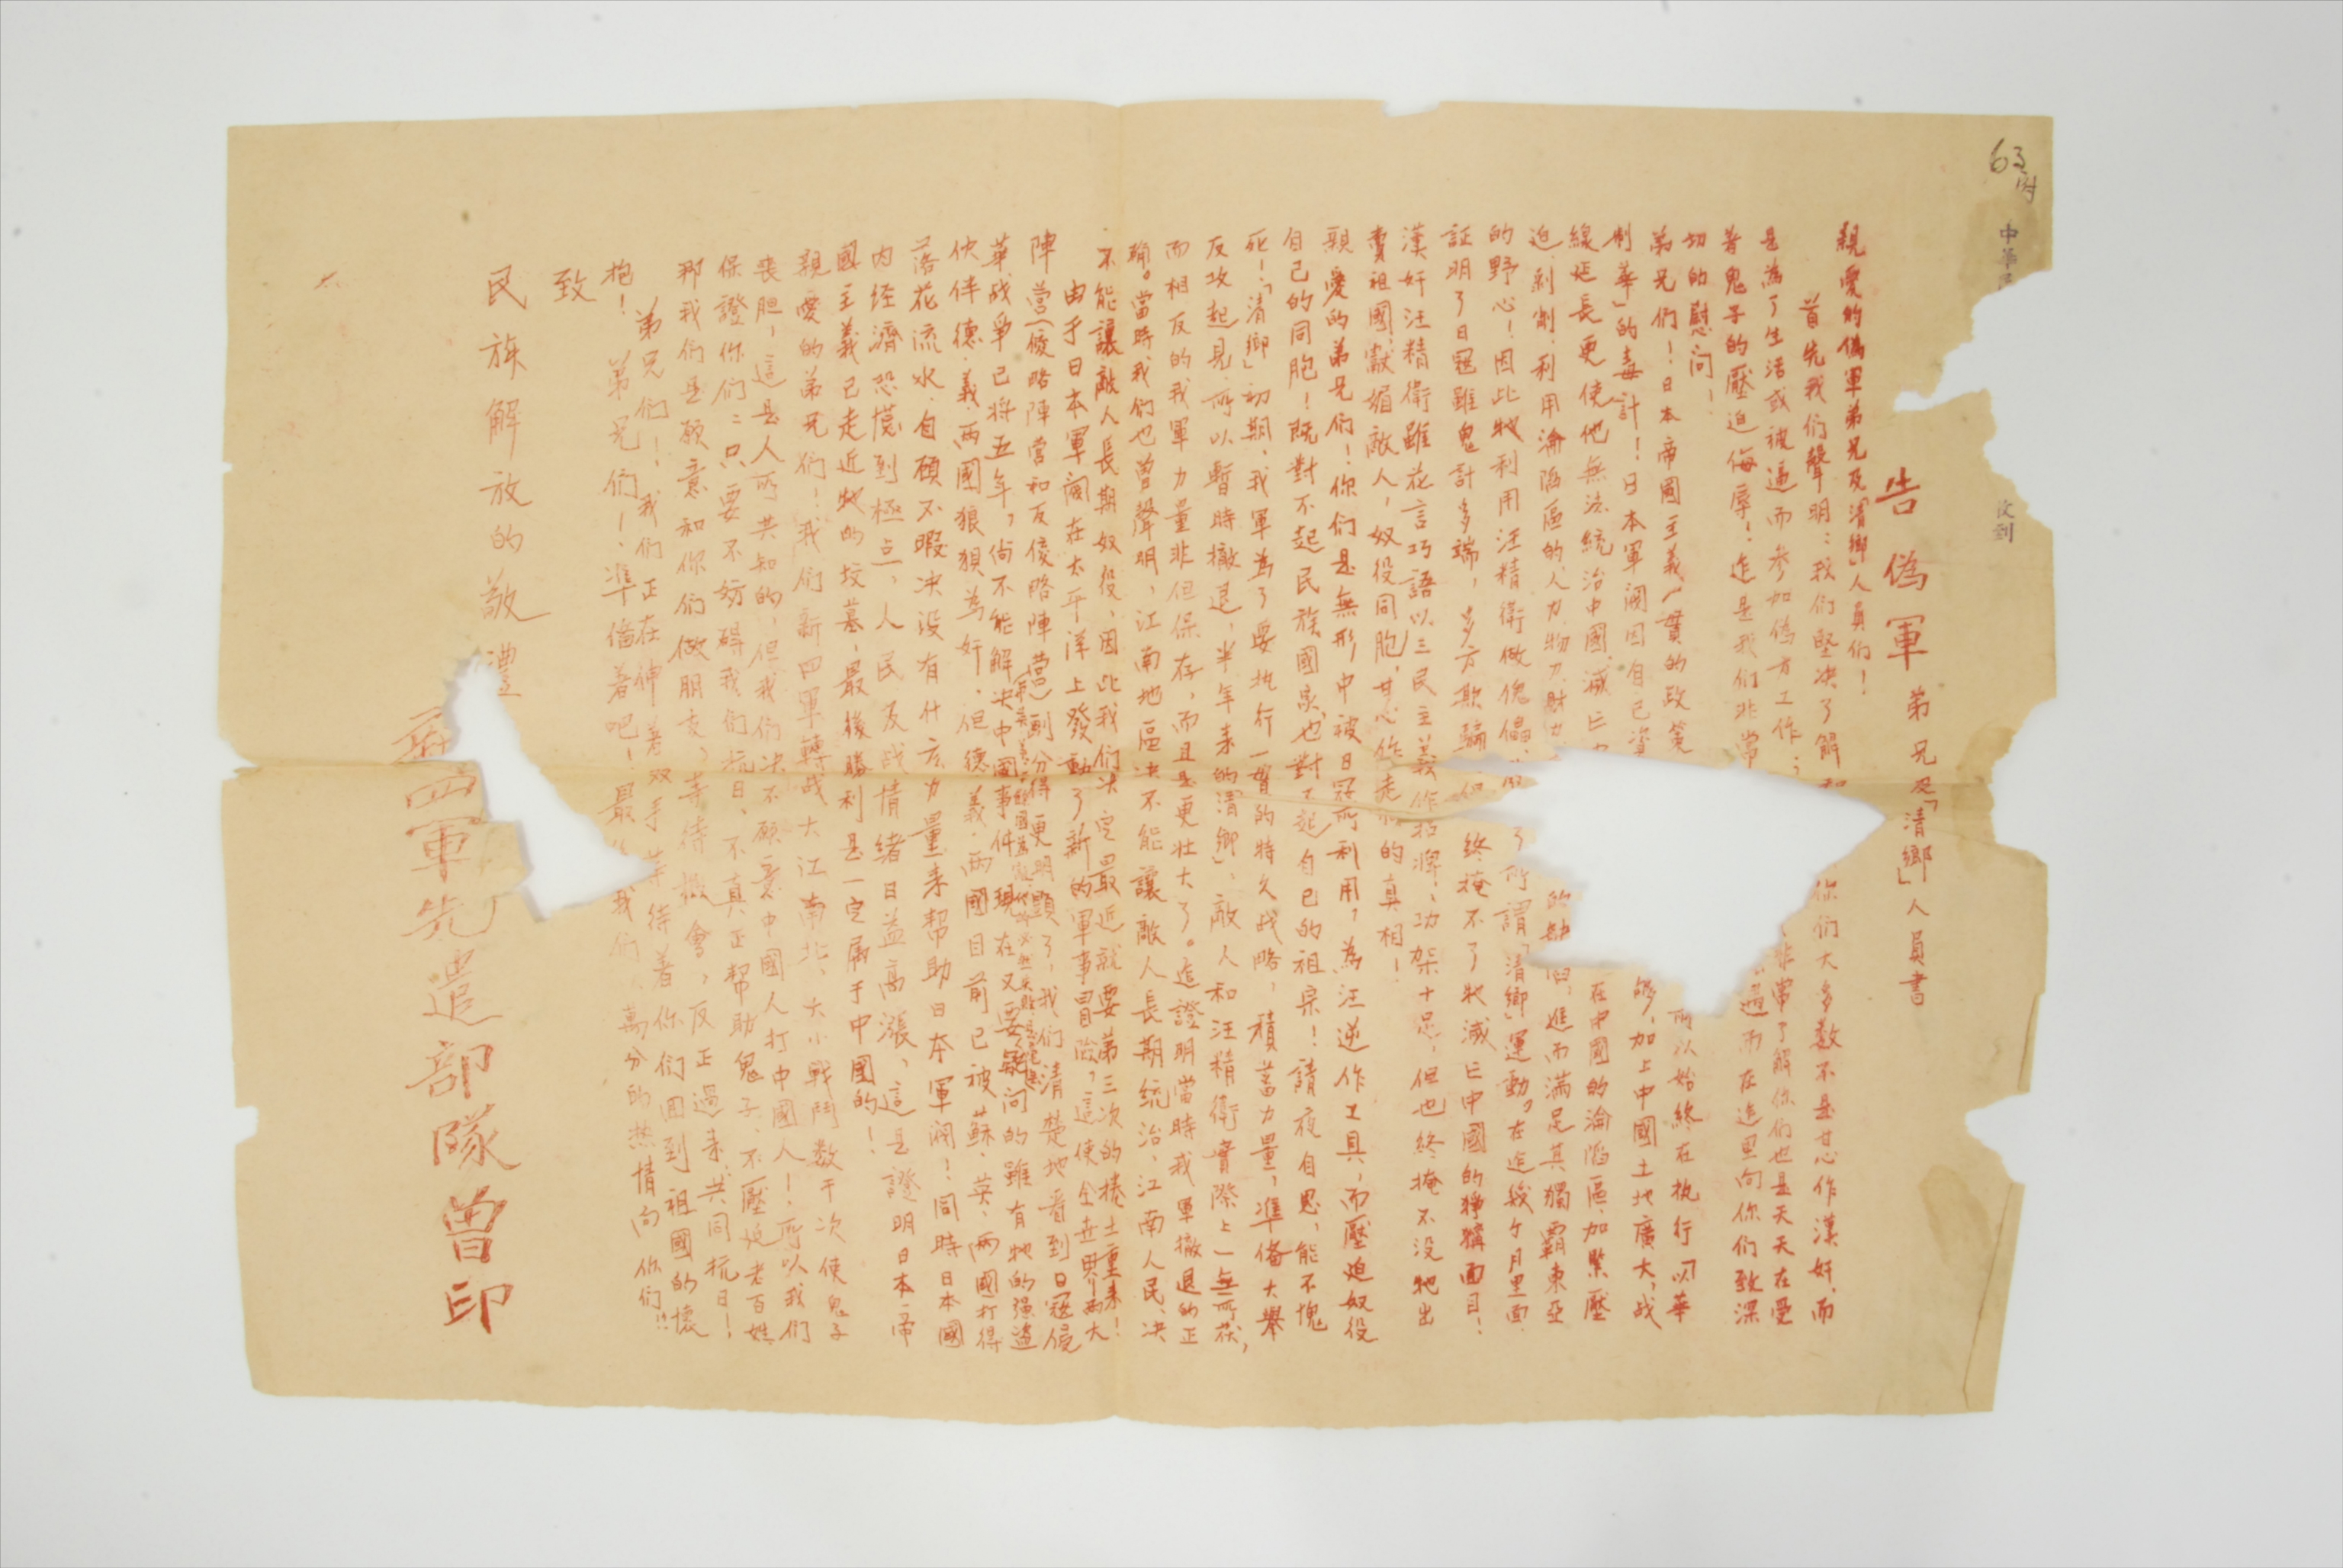 63附
中華民
收到
告偽軍弟兄及「清鄉」人員書
親愛的偽軍弟兄及「清鄉」人員們！
首先我們聲明：我們堅決了解 你們大多数不是甘心作漢奸，而
是為了生活或被逼而参加偽方工作； 非常了解你们也是天天在受
著鬼子的壓迫侮辱！ 這是我们非常 逼而在這里向你们致深
切的慰问！
弟兄們！日本帝國主義一貫的政策 所以始終在执行「以華
制華」的毒計！日本軍阀因自己資 够，加上中國土地廣大，战
線延長更使他無法統治中國，滅亡 在中國的淪陷區，加緊壓
迫，剥削，利用淪陷區的人力物力財力 進而滿足其獨霸東亞
的野心！因此牠利用汪精衛做傀儡， 了所謂「清鄉」運動，在這幾个月里面
証明了日寇雖鬼計多端，多方欺騙 終掩不了牠滅亡中國的猙獰面目！
漢奸汪精衛雖花言巧語以三民主義作招牌、功架十足，但也終掩不没牠出
賣祖國，献媚敵人，奴役同胞，甘心作走狗的真相！
親愛的弟兄們！你们是無形中被日寇所利用，為汪逆作工具，而壓迫奴役
自己的同胞！既對不起民族國家，也對不起自已的祖宗！請夜自思，能不愧
死！「清鄉」初期，我軍為了要执行一貫的特久战略，積蓄力量，準備大舉
反攻起見，所以暫時撤退，半年来的「清鄉」，敵人和汪精衛實際上一無所获，
而相反的我軍力量非但保存，而且是更壮大了。這證明當時我軍撤退的正
確。當時我们也曾聲明，江南地區决不能讓敵人長期統治，江南人民，决
不能讓敵人長期奴役，因此我们决定最近就要第三次的捲土重来！
由于日本軍阀在太平洋上發動了新的軍事冒险，這使全世界两大
陣营（侵略陣营和反侵略陣营）劃分得更明顯了，我们清楚地看到日寇侵
華战争已將五年，尚不能解决中國事件，現在又要 的雖有牠的强盗
伙伴德．義．两國狼狽為奸，但德．義．两國目前已被蘇．英．两國打得
落花流水，自顧不暇决没有什么力量来帮助日本軍阀！同時日本國
内经濟恐慌到極点，人民反战情緒日益高漲，這是證明日本帝
國主義已走近牠的坟墓，最後勝利是一定屬于中國的！
親愛的弟兄们！我们新四軍轉战大江南北，大小戰鬥数千次使鬼子
丧胆，這是人所共知的，但我们决不願意中國人打中國人！所以我们
保證你们：只要不妨碍我们抗日、不真正帮助鬼子，不壓迫老百姓
那我们是願意和你们做朋友，等待機會，反正過来，共同抗日！
弟兄们！我们正在伸著双手等待着你们回到祖國的懷
抱！弟兄们！準備着吧！最後我们 萬分的热情向你们！！
致
民族解放的敬禮
新四軍先遣部隊曾印